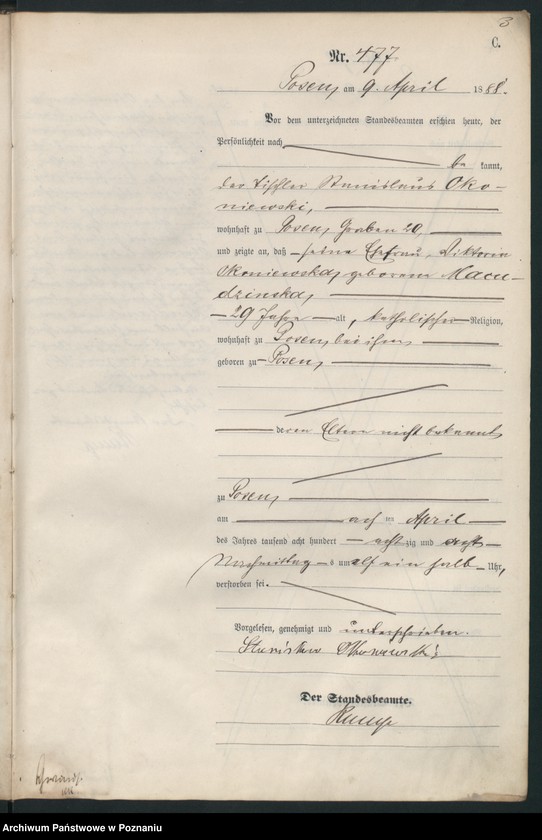 3
C.
Nr. 477
Posen, am 9. April 1888.
Vor dem unterzeichneten Standesbeamten erschien heute, der
Persönlichkeit nach
be kannt,
der Tischler Stanislaus Oko-
niewski,
wohnhaft zu Posen, Graben 20,
und zeigte an, daß seine Ehefrau, Viktoria
Okoniewska, geborene Macu-
dzinska,
29 Jahre alt, katholischer Religion,
wohnhaft zu Posen, bei ihm
geboren zu Posen,
deren Eltern nicht bekannt
zu Posen,
am acht ten April
des Jahres tausend acht hundert acht zig und acht
Nachmittag s um elf ein halb Uhr,
verstorben sei.
Vorgelesen, genehmigt und unterschrieben.
Stanisław Okoniewski
Der Standesbeamte.
Archiwum Państwowe w Poznaniu